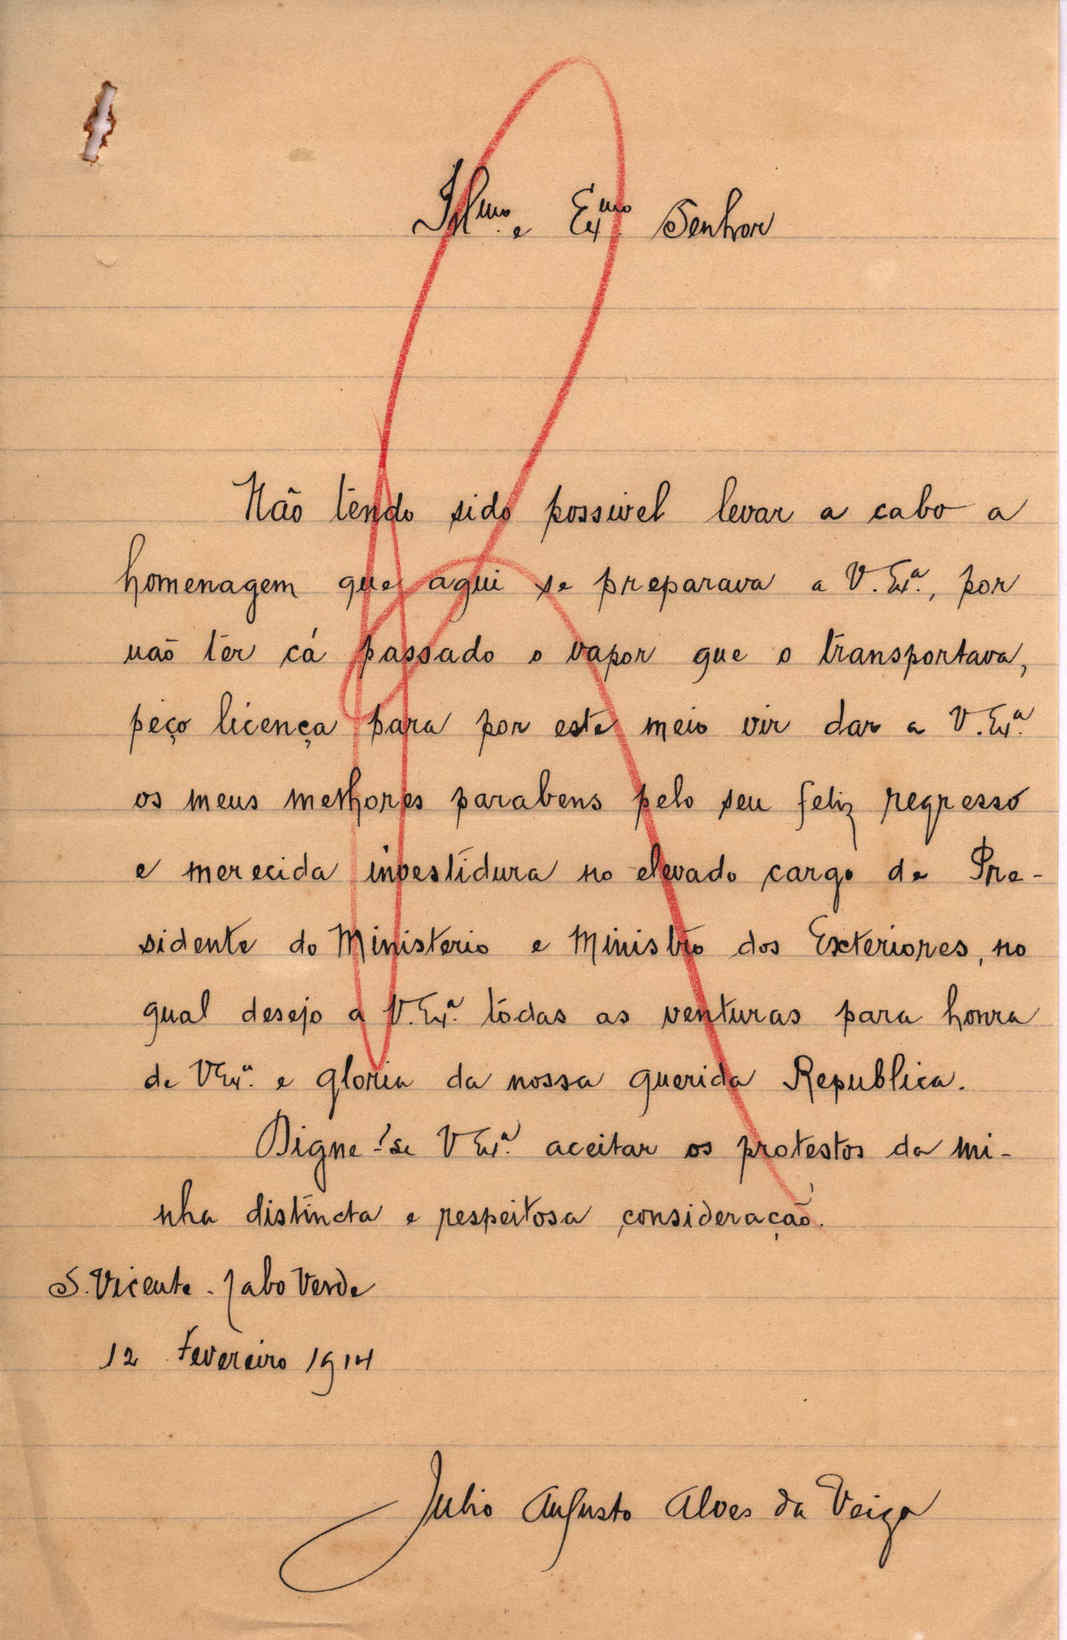 Illmo. e Exmo. Senhor
Não tendo sido possivel levar a cabo a
homenagem que aqui se preparava a V. Exª., por
não ter cá passado o vapor que o transportava,
peço licença para por este meio vir dar a V. Exª.
os meus melhores parabens pelo seu feliz regresso
e merecida investidura no elevado cargo de Pre-
sidente do Ministerio e Ministro dos Exteriores, no
qual desejo a V. Exª. tódas as venturas para honra
de V Exª. e gloria da nossa querida Republica.
Digne-se V Exª. aceitar os protestos da mi-
nha distincta e respeitosa consideração.
S. Vicente - Cabo Verde
12 Fevereiro 1914
Julio Augusto Alves da Veiga